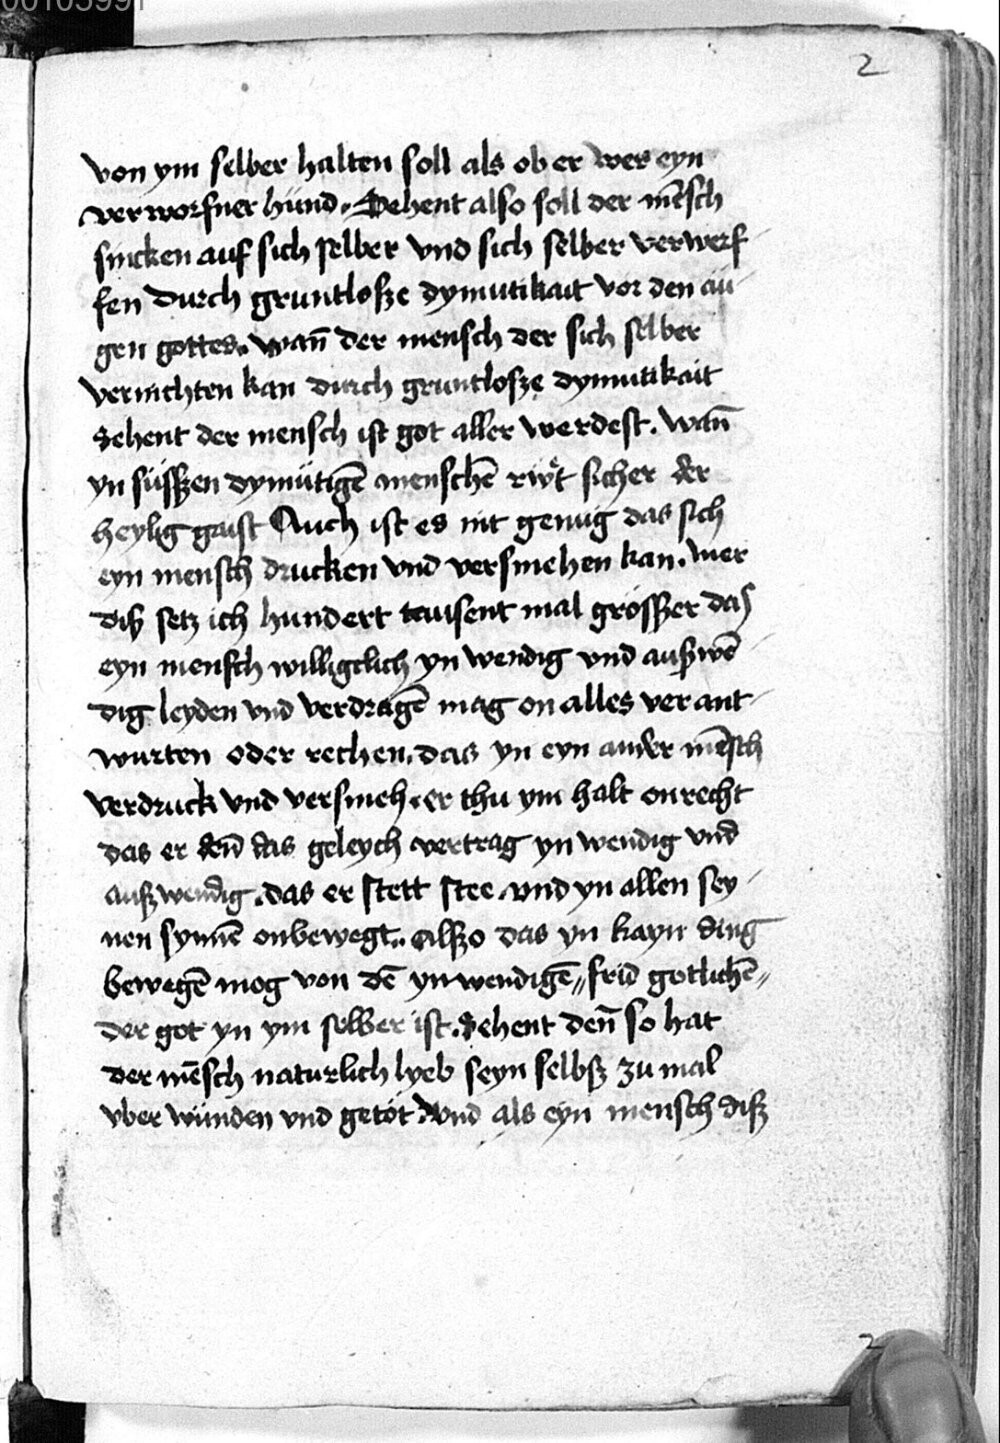 00103991
2
von ym selber halten soll als ob er wer eyn
verworfner hünd. Sehent also soll der mēsch
sincken auf sich selber vnd sich selber verwerf
fen durch gruntlosze dymutikait vor den aü
gen gottes. wan̄ der mensch der sich selber
vernichten kan durch gruntlosze dymutikait
Sehent der mensch ist got aller werdest. wan̄
yn süsszen dymütigē menschē rwͤt sicher der
heylig gaist Auch ist es nit genug das sich
eyn mensch drucken vnd versmehen kan. mer
disz setz ich hundert tausent mal grösszer das
eyn mensch williglich yn wendig vnd auszwē
dig leyden vnd verdragē mag on alles verant
wurten oder rechen. das yn eyn ander mēsch
verdruck vnd versmeh. er thu ym halt onrecht
das er den̄ das geleych vertrag yn wendig vnd
auszwendig. das er stett stee. vnd yn allen sey
nen synnē onbewegt. alszo das yn kayn ding
bewegē mog von dē ynwendigē frid gotlichē
der got yn ym selber ist. Sehent den̄ so hat
der mēsch naturlich lyeb seyn selbsz zu mal
vber wunden vnd getöt. Vnd als eyn mensch disz
2